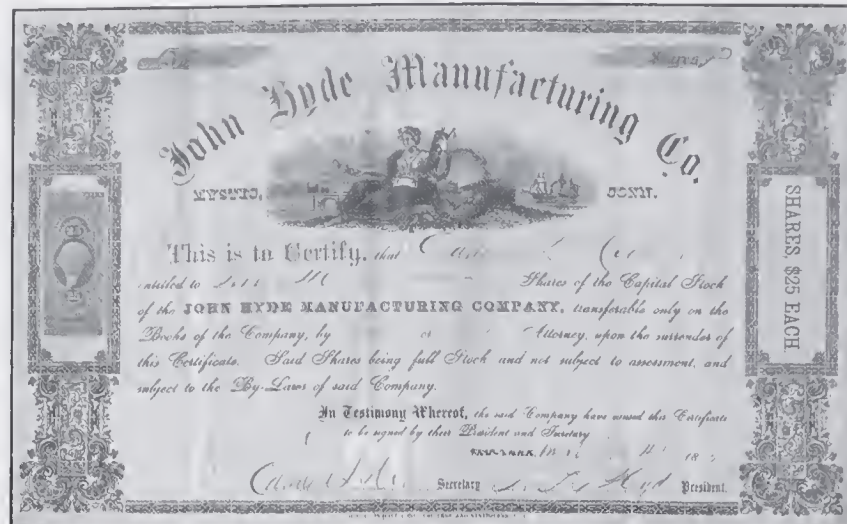 Shares
John Hyde Manufacturing Co.
MYSTIC, CONN.
This is to Certify, that
entitled to Shares of the Capital Stock
of the JOHN HYDE MANUFACTURING COMPANY, transferable only on the
Books of the Company, by or Attorney, upon the surrender of
this Certificate. Said Shares being full Stock and not subject to assessment, and
subject to the By-Laws of said Company.
In Testimony Whereof, the said Company have caused this Certificate
to be signed by their President and Secretary
NEW-YORK, 18
Secretary Hyde President.
SHARES, $25 EACH.